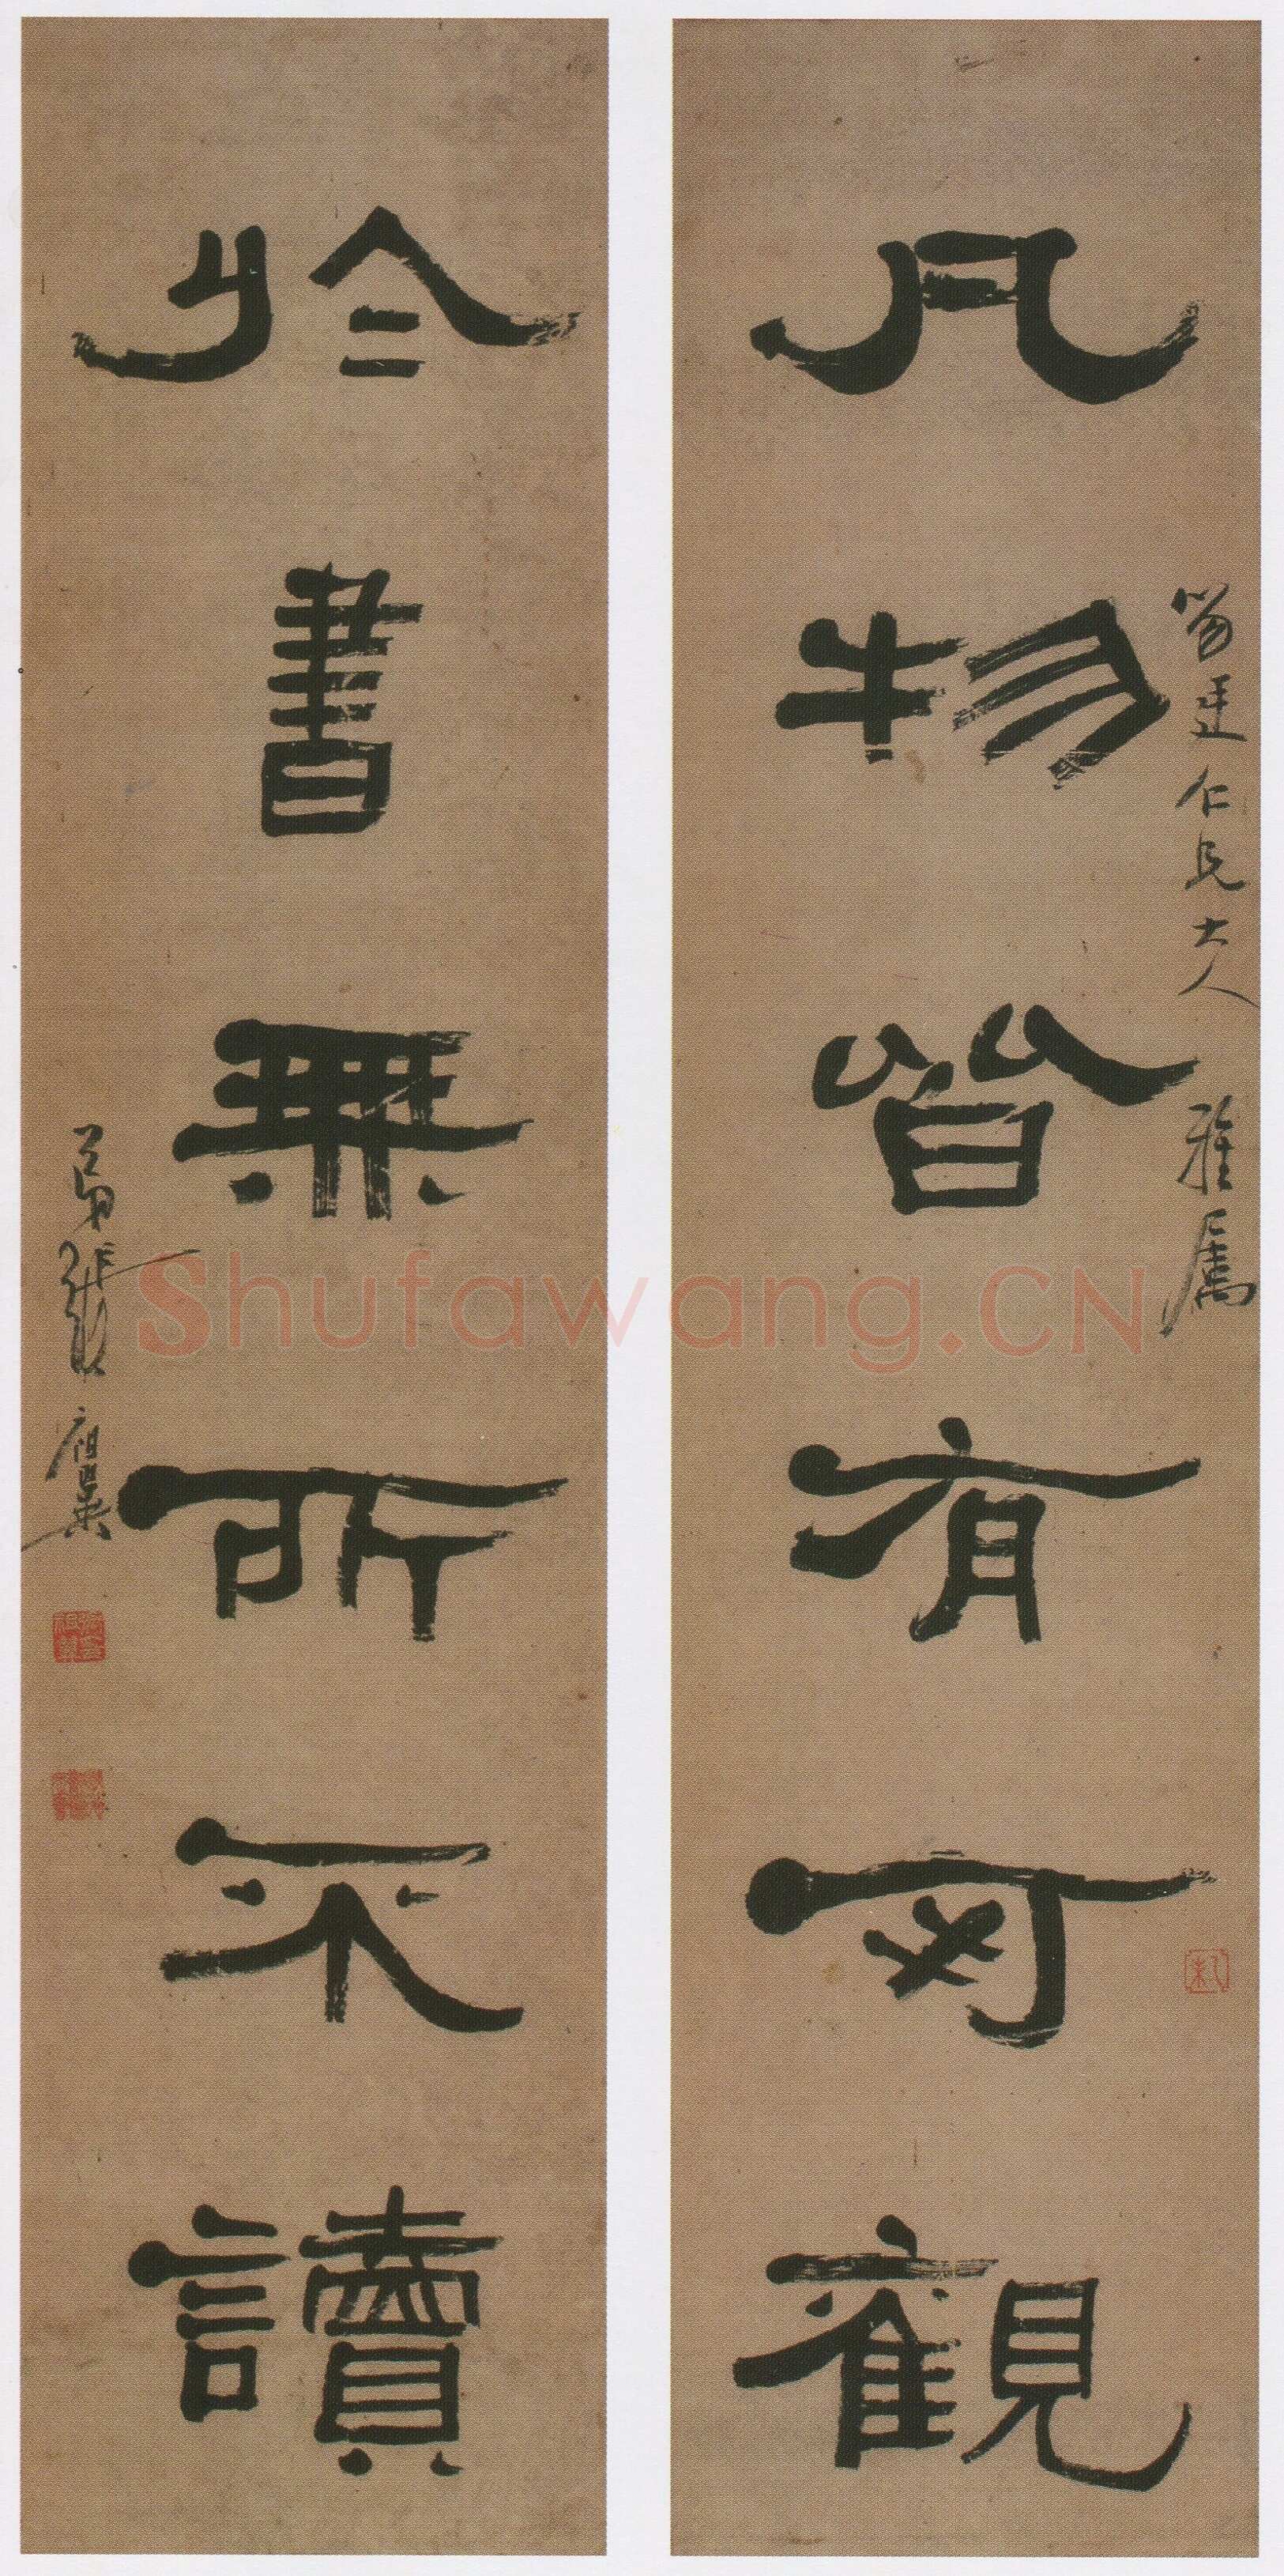 凡物皆有可觀
笏廷仁兄大人 雅屬
於書無所不讀
弟張祖翼
Shufawang.CN